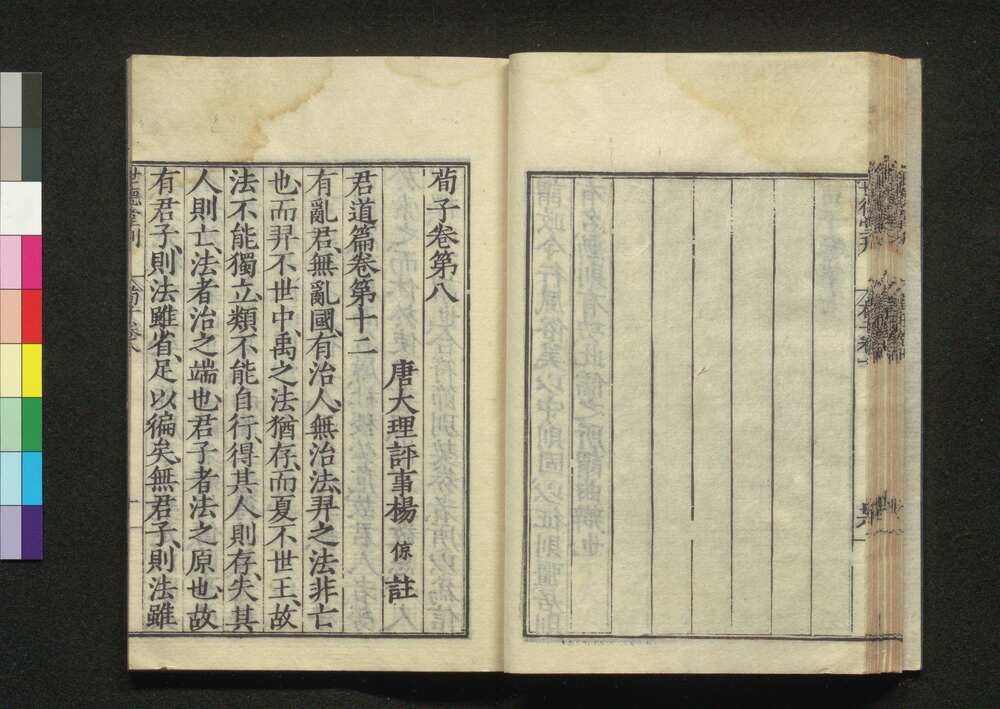 荀子卷第八
唐大理評事楊倞註
君道篇卷第十二
有亂君、無亂國、有治人、無治法、羿之法非亡
也、而羿不世中、禹之法猶存、而夏不世王、故
法不能獨立、類不能自行、得其人則存、失其
人則亡、法者治之端也、君子者法之原也、故
有君子、則法雖省、足以徧矣、無君子、則法雖
世德堂刊
荀子卷八